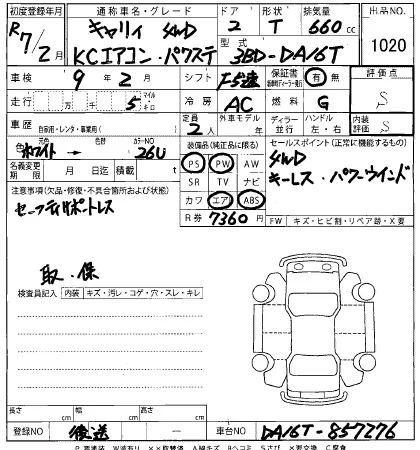 初度登録年月 通称車名・グレード ドア 形状 排気量 出品NO.
R7/2月 キャリィ 4WD 2 T 660 cc 1020
KCエアコン・パワステ 型式 3BD-DA16T
車検 9年2月 シフト F5速 保証書 有 無 評価点
S
走行 万 千 5 マイル キロ 冷房 AC 燃料 G
車歴 自家用・レンタ・事業用( ) 定員 2人 外車モデル 年 ディーラー 並行 ハンドル 左・右 内装評価 S
色 元色 ホワイト → 色替 カラーNO 26U
装備品(純正品に限る) セールスポイント(正常に機能するもの)
名義変更期限 月 日迄 積載 t
PS PW AW
SR TV ナビ
カワ エアB ABS
R券 7360円
4WD
キーレス・パワーウインド
注意事項(欠品・修復・不具合箇所および状態)
セーフティサポートレス
FW キズ・ヒビ割・リペア跡・X要
取・保
検査員記入 内装 キズ・汚レ・コゲ・穴・スレ・キレ
長さ cm 幅 cm 高さ cm
登録NO 後送 — 車台NO DA16T-857276